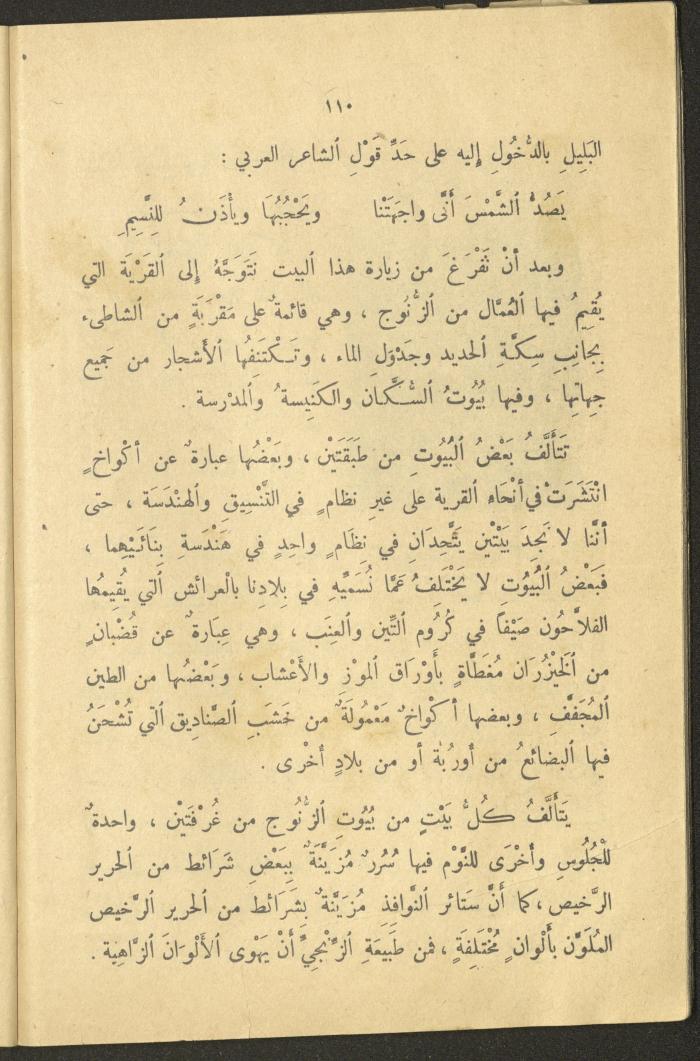 ١١٠
البَلِيلِ بالدُّخُولِ إِليه على حَدِّ قَوْلِ ٱلشاعر العربي :
يَصُدُّ ٱلشَّمْسَ أَنَّى واجَهَتْنا ويَحْجُبُهَا ويأْذَنُ لِلنَّسِيمِ
وبعد أنْ نَفْرَغَ من زيارة هذا ٱلبيت نَتَوَجَّهُ إِلى ٱلقَرْيَة التي
يُقِيمُ فيها ٱلعُمَّال من ٱلزُّنُوج ، وهي قائمةٌ على مَقْرَبَةٍ من ٱلشاطىء
بِجانِبِ سِكَّةِ ٱلحديد وجَدْوَلِ الماء ، وتَكْتَنِفُها ٱلأَشجار من جَميع
جِهاتِها ، وفيها بُيُوتُ ٱلسُّكَّان والكَنِيسةُ وٱلمدْرسة .
تَتَأَلَّفُ بَعْضُ ٱلبُيُوتِ من طَبَقَتَيْن ، وبَعْضُها عبارةٌ عن أكْواخٍ
انْتَشَرَتْ في أنْحَاءِ القرية على غيرِ نظامٍ في التَّنْسِيقِ وٱلهنْدَسَة ، حتى
أنَّنا لا نَجِدَ بَيْتَيْن يَتَّحِدَانِ في نِظَامٍ واحِدٍ في هَنْدَسةِ بِنَائَيْهِما ،
فَبَعْضُ ٱلبُيُوت لا يَخْتَلِفُ عَمَّا نُسَمِّيهِ في بِلادِنا بالْعرائش ٱلتي يُقِيمُها
الفلاَّحُون صَيْفًا في كُرُوم ٱلتِّين وٱلعِنَب ، وهي عِبَارةٌ عن قُضْبانٍ
من ٱلخَيْزُرَان مُغَطَّاةٍ بأَوْرَاق ٱلموْز والأَعْشاب ، وبَعْضُها من الطين
ٱلمُجَفَّفِ ، وبعضها أكْواخٌ مَعْمُولَةٌ من خَشَبِ ٱلصَّنادِيق ٱلتي تُشْحَنُ
فيها ٱلبضائعُ من أورُبَّة أو من بلادٍ أُخْرى .
يَتَأَلَّفُ كُلُّ بَيْتٍ من بُيُوتِ ٱلزُّنُوج من غُرْفَتَيْن ، واحدةٌ
للْجُلُوسِ وأُخْرَى للنَّوْم فيها سُرُرٌ مُزَيَّنَةٌ بِبَعْضِ شَرَائط من ٱلحرير
الرَّخيص ، كما أَنَّ سَتائر ٱلنَّوافِذِ مُزَيَّنةٌ بِشَرَائط من ٱلحرير ٱلرَّخيص
المُلَوَّن بألْوانٍ مُخْتَلِفَةٍ ، فمن طَبيعَةِ ٱلزِّنْجِيِّ أَنْ يَهْوى ٱلأَلْوَانَ ٱلزَّاهِيَة .